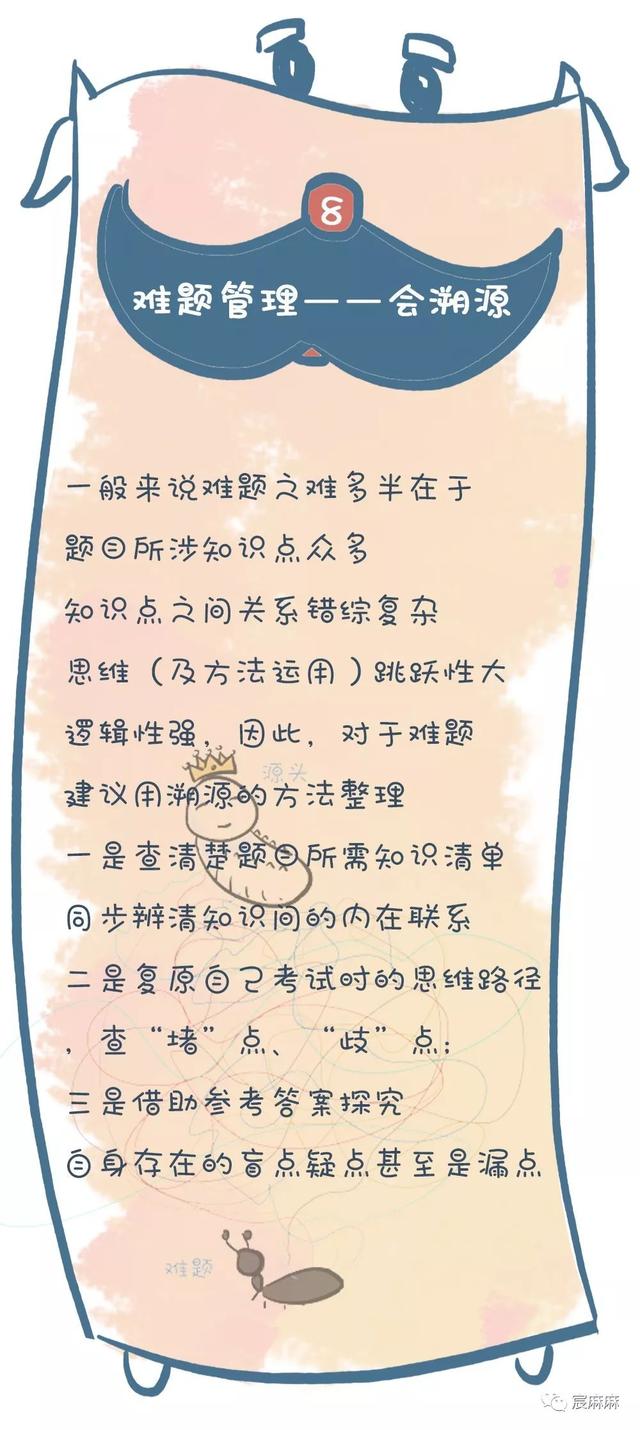 8
难题管理——会溯源
一般来说难题之难多半在于
题目所涉知识点众多
知识点之间关系错综复杂
思维（及方法运用）跳跃性大
逻辑性强，因此，对于难题
源头
建议用溯源的方法整理
一是查清楚题目所需知识清单
同步辨清知识间的内在联系
二是复原自己考试时的思维路径
，查“堵”点、“歧”点；
三是借助参考答案探究
自身存在的盲点疑点甚至是漏点
难题
宸麻麻